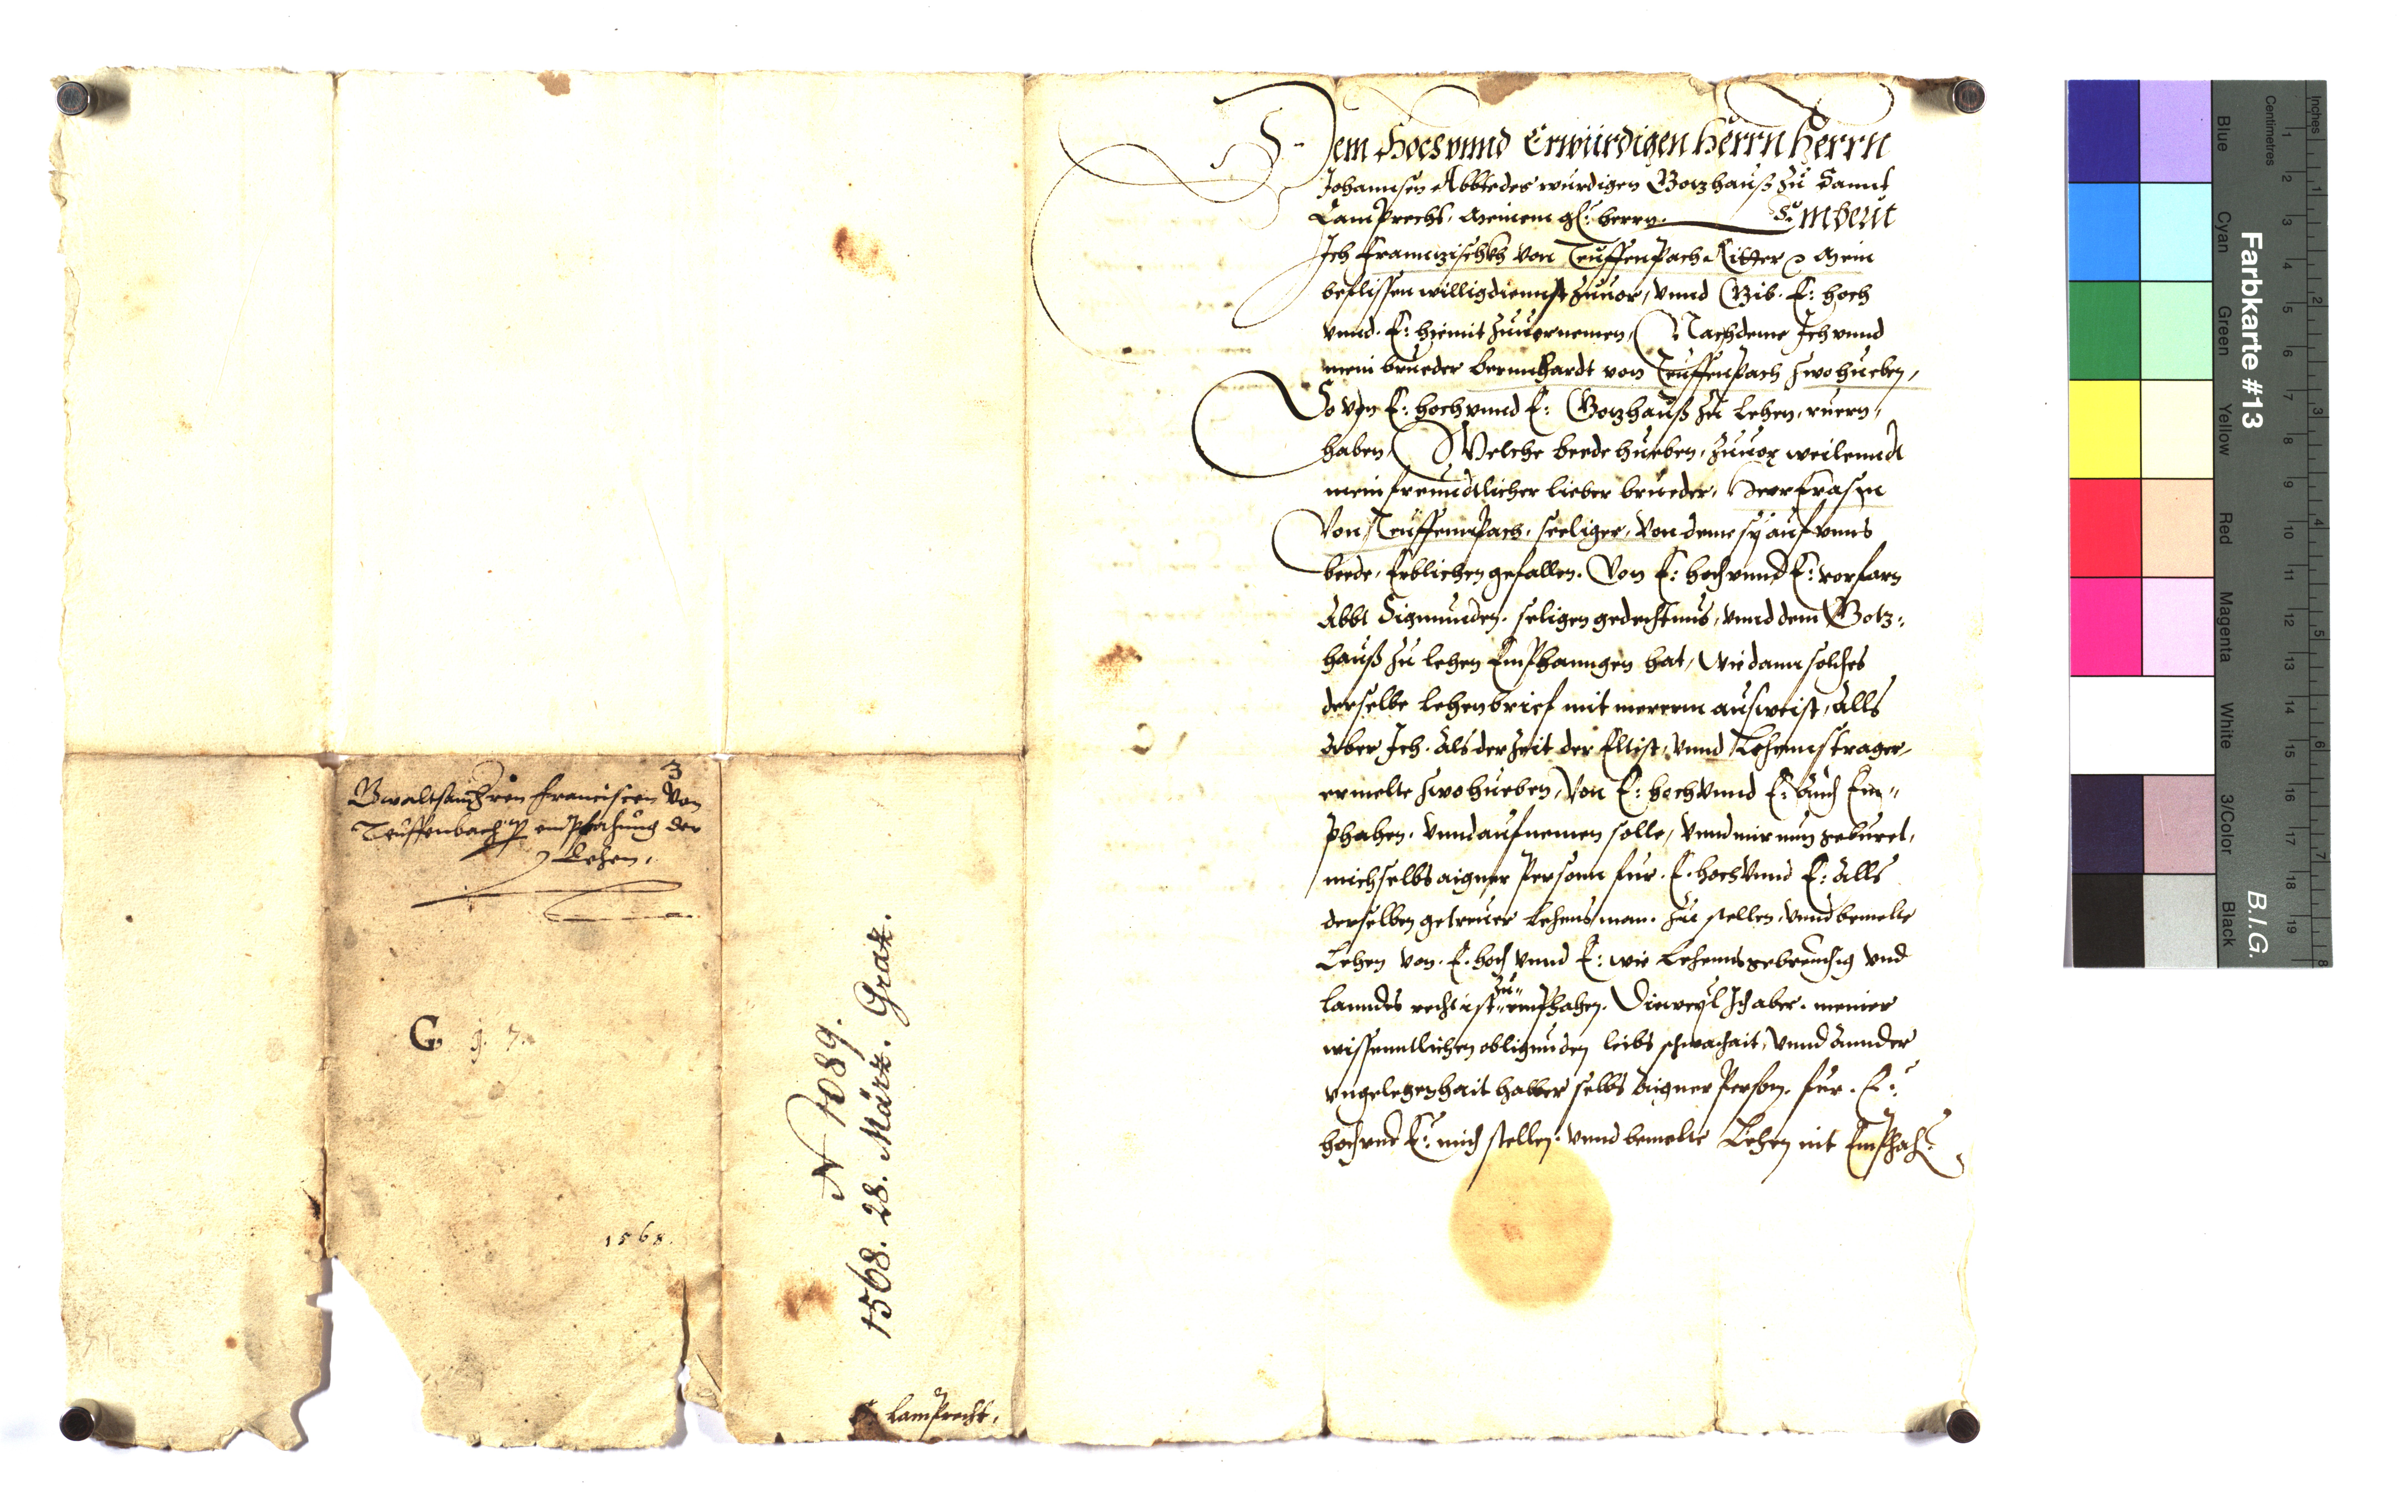 Dem Hochvnnd Erwürdigen Herrn Herrn
Johannsen Abbte des würdigen Gotzhauß zu Sannt
Lamprecht. Meinem g: herrn. Embeut
Ich Franntzischkh von Teuffenpach Ritter Mein
beflissen willig diennst zuuor, vnnd Gib. E: hoch
vnnd. E: hiemit zuuernemen, Nachdeme Ich vnnd
mein brueder Bernnhardt von Teuffenpach zwo hueben,
So von E: hoch vnnd E: Gotzhauß zu lehen, ruern,
haben, Welche beede hueben, zuuor weilenndt
mein freundtlicher lieber brueder, Herr Erasm
Von Teuffennpach, seeliger, von deme sy auf vnns
beede, Erblichen gefallen. Von E: hoch vnnd E: vorfarn
Abbt Sigmunden. seligen gedechtnus, vnnd dem Gotz:
hauß zu lehen Emphanngen hat, Wie dann solches
derselbe lehenbrief mit mererm ausweist, Alls
Aber Ich. Als der Zeit der Elltist, vnnd Lehennstrager,
ermelte zwo hueben, Von E: hoch vnnd E: Auch Em"
phahen. vnnd aufnemen solle, vnnd mir nun geburet,
mich selbs aigner Person fur. E. hoch vnnd E: Alls
derselben getreuer Lehensman. zu stellen, vnnd bemelte
Lehen von. E. hoch vnnd E: wie Lehennsgebreuchig vnd
zu"
lanndes recht ist" emphahen. Dieweyl Ich aber. meiner
wissenntlichen obligunden leibs schwachait, vnnd annder
vngelegenhait halber selbs Aigner Person. fur. E:
hoch vnd E: mich stellen. vnnd bemelte Lehen nit Emphah:
3
Gwaltsau Herrn Franciscen von
Teuffenbach emphahung der
Lehen,
G. j. 7.
1568.
N 1089.
1568. 28. März. Graz.
S. Lamprecht.
Farbkarte #13
B.I.G.
Blue
Cyan
Green
Yellow
Red
Magenta
White
3/Color
Black
Centimetres
Inches
1 2 3 4 5 6 7 8 9 10 11 12 13 14 15 16 17 18 19
1 2 3 4 5 6 7 8